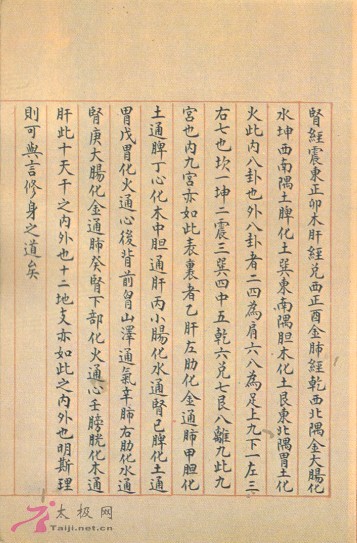 腎經震東正卯木肝經兌西正酉金肺經乾西北隅金大腸化
水坤西南隅土脾化土巽東南隅胆木化土艮東北隅胃土化
火此內八卦也外八卦者二四為肩六八為足上九下一左三
右七也坎一坤二震三巽四中五乾六兌七艮八離九此九
宮也內九宮亦如此表裏者乙肝左肋化金通肺甲胆化
土通脾丁心化木中胆通肝丙小腸化水通腎己脾化土通
胃戊胃化火通心後背前胷山澤通氣辛肺右肋化水通
腎庚大腸化金通肺癸腎下部化火通心壬膀胱化木通
肝此十天干之內外也十二地支亦如此之內外也明斯理
則可與言修身之道矣
太极网
Taiji.net.cn